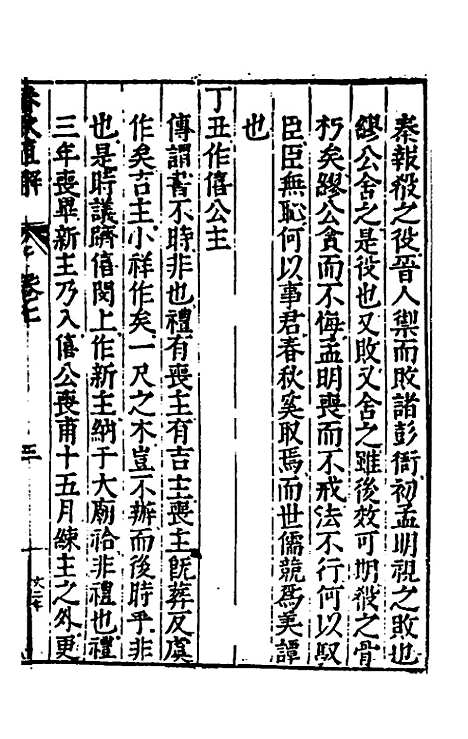 秦報殽之役晉人禦而敗諸彭衙初孟明視之敗也
繆公舍之是役也又敗又舍之雖後效可期殽之骨
朽矣繆公貪而不悔孟明喪而不戒法不行何以馭
臣臣無恥何以事君春秋奚取焉而世儒競爲美譚
也
丁丑作僖公主
傳謂書不時非也禮有喪主有吉主喪主旣葬反虞
作矣吉主小祥作矣一尺之木豈不辦而後時乎非
也是時議躋僖閔上作新主納于大廟祫非禮也禮
三年喪畢新主乃入僖公喪甫十五月練主之外更
春秋直解
卷七
三
文二年